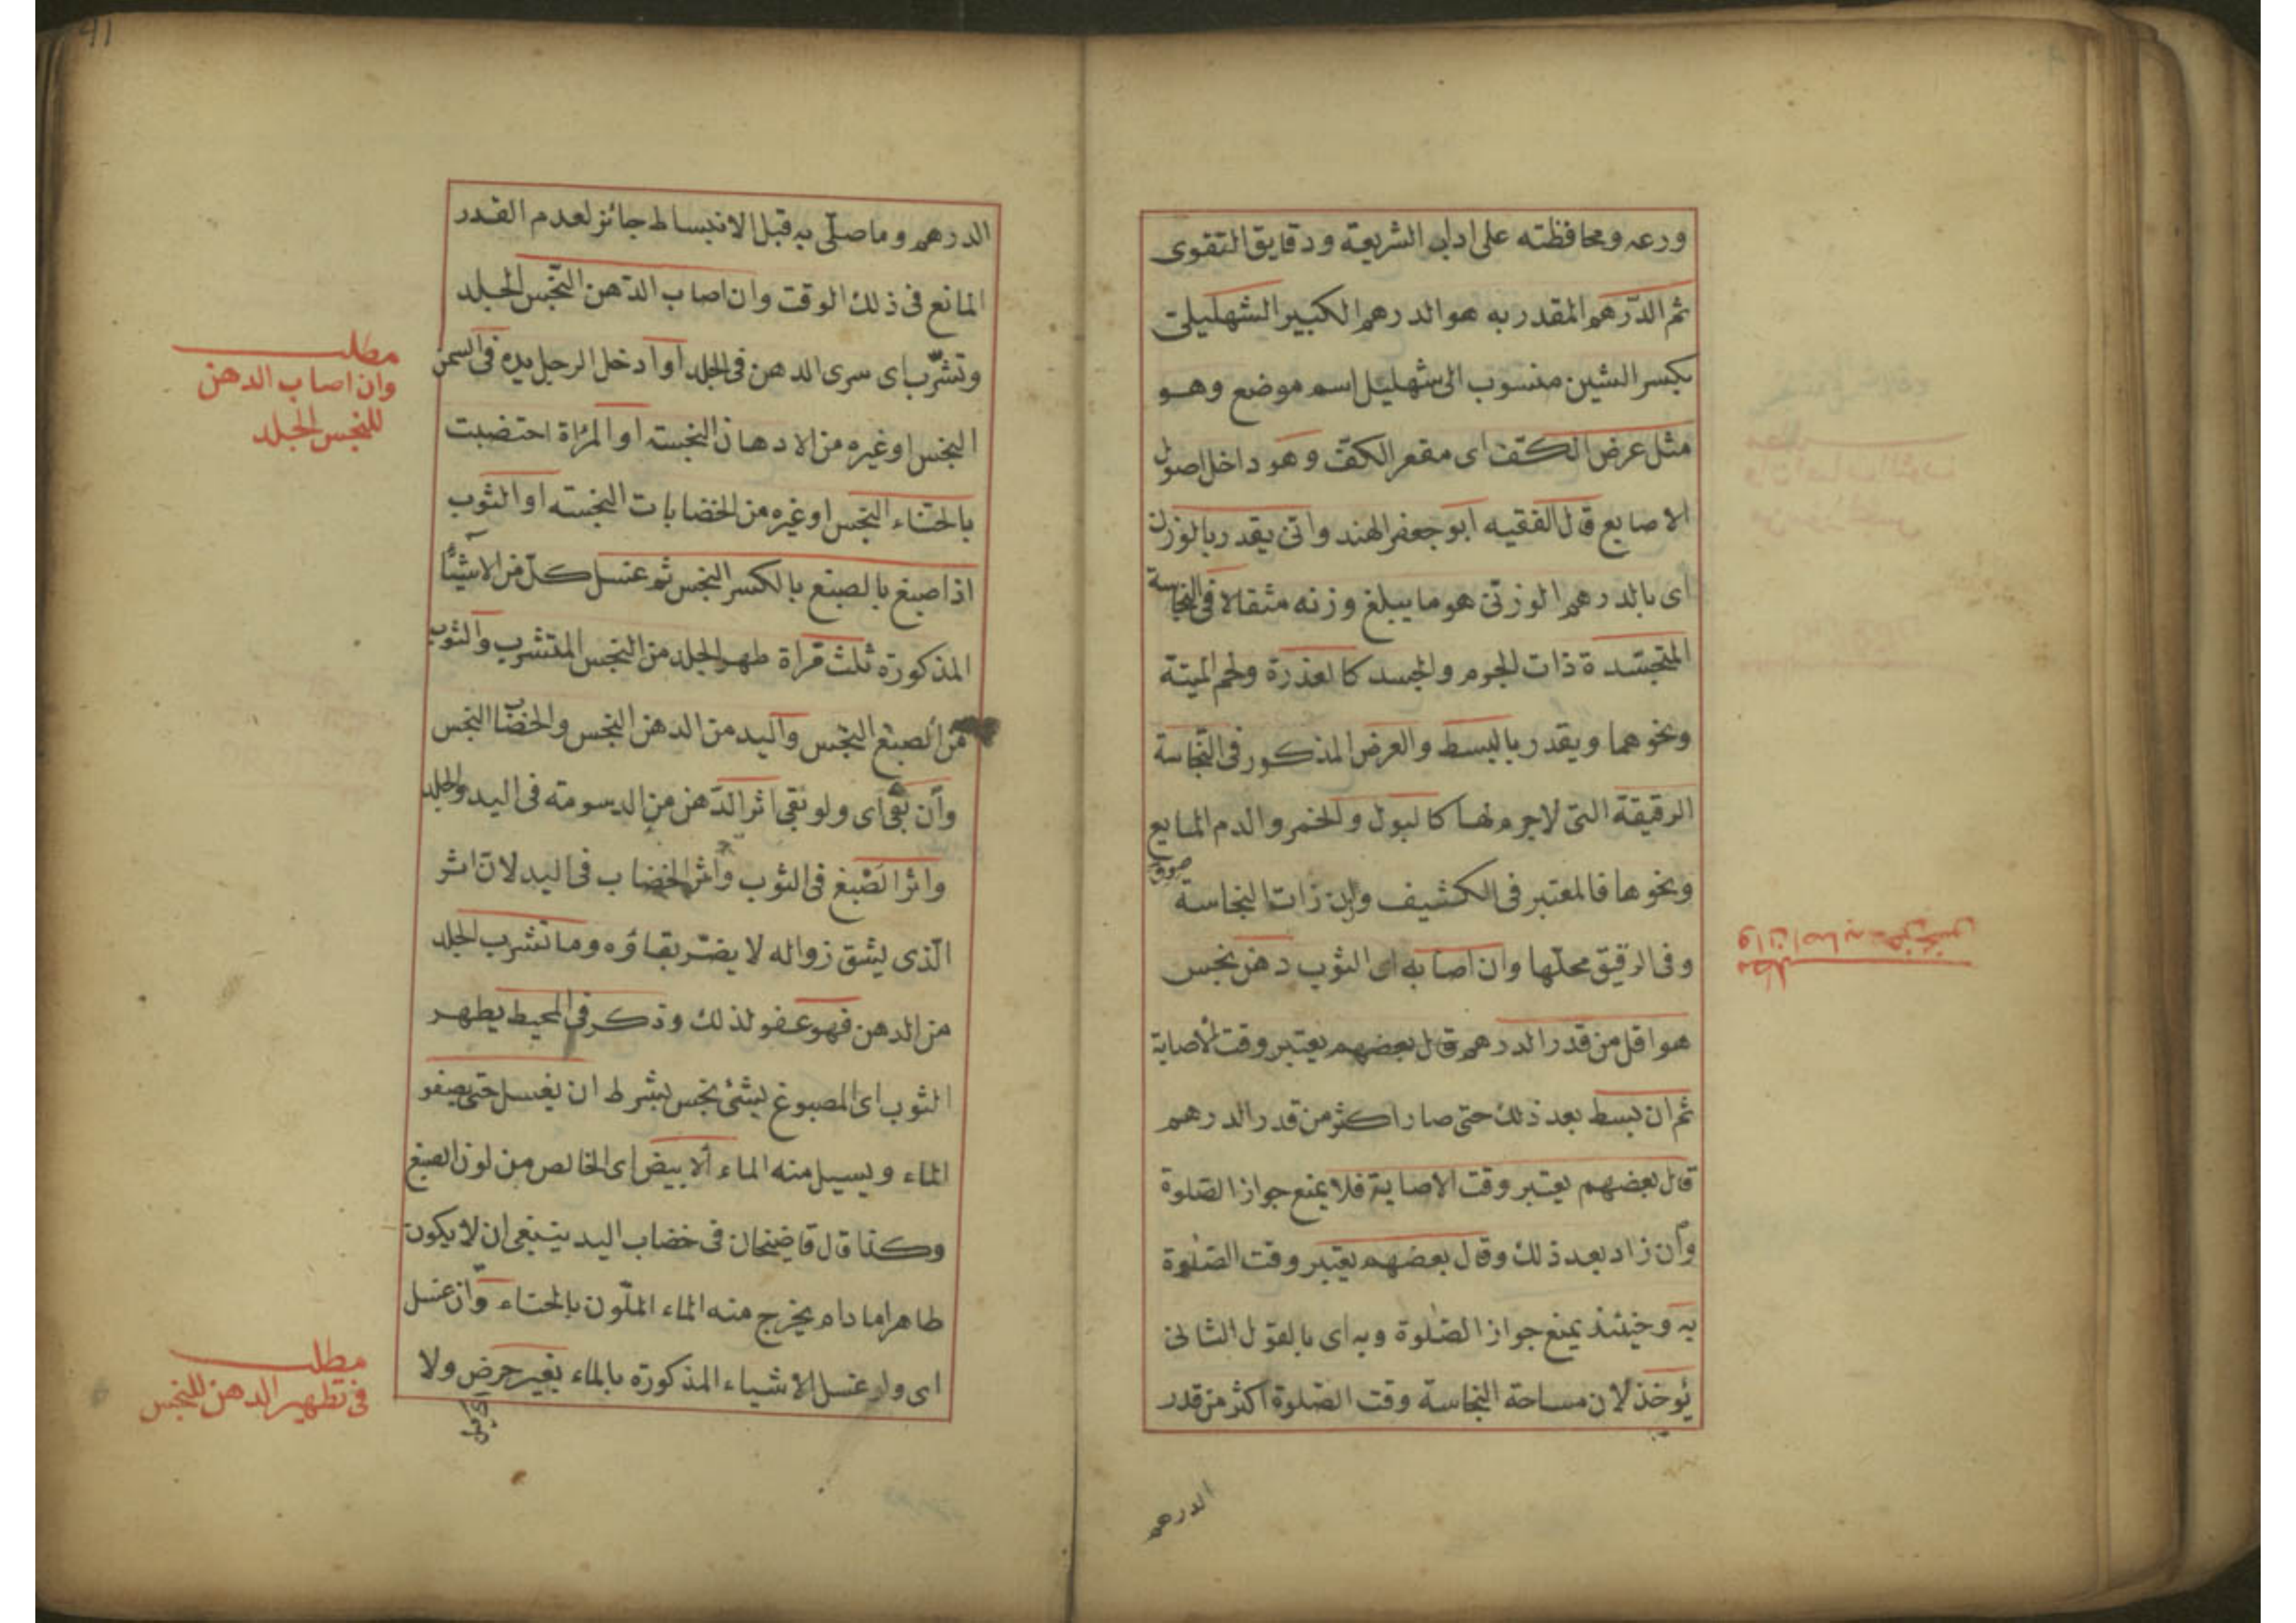 ورعه ومحافظته على اداب الشريعة ودقايق التقوى
ثم الدرهم المقدر به هو الدرهم الكبير الشهليلى
بكسر الشين منسوب الى شهليل اسم موضع وهو
مثل عرض الكف اى مقعر الكف وهو داخل اصول
الاصابع قال الفقيه ابو جعفر الهندوانى يقدر بالوزن
اى بالدرهم الوزنى هو ما يبلغ وزنه مثقالا فى النجاسة
المتجسدة ذات الجرم والجسد كالعذرة ولحم الميتة
ونحوهما ويقدر بالبسط والعرض المذكور فى النجاسة
الرقيقة التى لا جرم لها كالبول والخمر والدم المايع
ونحوها فالمعتبر فى الكشيف وزن ذات النجاسة
وفى الرقيق محلها وان اصابه اى الثوب دهن نجس
هو اقل من قدر الدرهم قال بعضهم يعتبر وقت الاصابة
ثم ان بسط بعد ذلك حتى صار اكثر من قدر الدرهم
قال بعضهم يعتبر وقت الاصابة فلا يمنع جواز الصلوة
وان زاد بعد ذلك وقال بعضهم يعتبر وقت الصلوة
به وحينئذ يمنع جواز الصلوة وبه اى بالقول الثانى
يؤخذ لان مساحة النجاسة وقت الصلوة اكثر من قدر
الدرهم
مطلب
وان اصابه دهن نجس
41
الدرهم وما صلى به قبل الانبساط جائز لعدم القدر
المانع فى ذلك الوقت وان اصاب الدهن النجس الجلد
وتشرب اى سرى الدهن فى الجلد او ادخل الرجل يده فى السمن
النجس او غيره من الادهان النجسته او المراة اختضبت
بالحناء النجس او غيره من الخضابات النجسته او الثوب
اذا صبغ بالصبغ بالكسر النجس ثم غسل كل من الاشياء
المذكورة ثلث مراة طهر الجلد من النجس المتشرب والثوب
من الصبغ النجس واليد من الدهن النجس والخضاب النجس
وان بقى اى ولو بقى اثر الدهن من الدسومته فى اليد والجلد
واثر الصبغ فى الثوب واثر الخضاب فى اليد لان اثر
الذى يشق زواله لا يضر بقاؤه وما تشرب الجلد
من الدهن فهو عفو لذلك وذكر فى المحيط يطهر
الثوب اى المصبوغ بشئ نجس بشرط ان يغسل حتى يصفو
الماء ويسيل منه الماء الابيض اى الخالص من لون الصبغ
وكذا قال قاضيخان فى خضاب اليد ينبغى ان لا يكون
طاهرا ما دام يخرج منه الماء الملون بالحناء وان غسل
اى ولو غسل الاشياء المذكورة بالماء بغير حرض ولا
مطلب
وان اصاب الدهن
للنجس الجلد
مطلب
فى تطهير الدهن للنجس